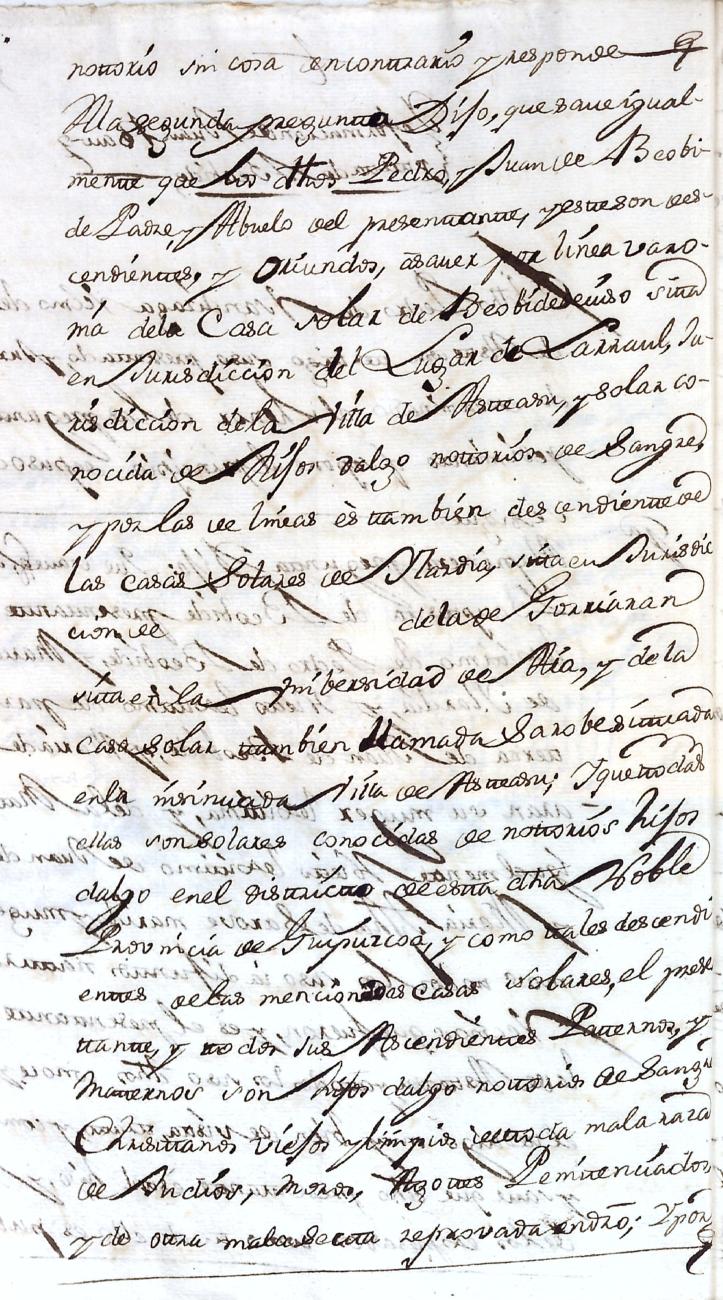 nottorio sin cosa encontrario y responde
Alla segunda pregunta Dijo, que save igual-
mente que los dthos Pedro, y Juan de Beobi-
de Padre, y Abuelo del presentante, y este son des-
cendientes, y oriundos, asaver por linea varo-
nia dela Casa solar de Beobide sitta
en Jurisdiccion del Lugar de Larraul, Ju-
risdiccion dela Villa de Asteasu, y solar co-
nocida de Hijos dalgo nottorios de Sangre,
y por las de lineas es tambien descendiente de
las casas Solares de Mardia, sitta en Jurisdic
cion de dela de Gorriaran
sitta en la Unibersidad de Aia, y dela
Casa solar tambien llamada Sarobe situada
enla insinuada Villa de Asteasu; Y que todas
ellas son solares conocidas de nottorios hijos
dalgo enel districtto de esta dtha Noble
Provincia de Guipuzcoa, y como tales descendi
entes delas mencionadas casas solares, el presen
ttante, y todos sus Ascendientes Patternos, y
Matternos son hijos dalgo nottorios de Sangre
Christianos viejos y limpios de toda mala raza
de Judios, Moros, Agotes Penitenciados
y de otra mala Secta reprovada en dro; Y por